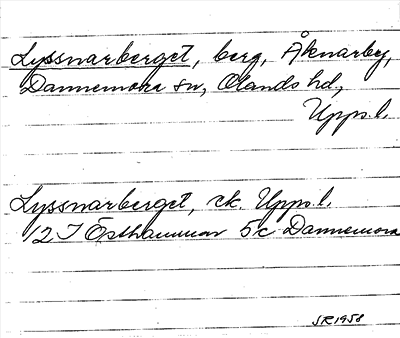 Lyssnarberget, berg, Åknarby,
Dannemora sn, Olands hd,
Upps.l.
Lyssnarberget, ek. Upps.l.
12I Östhammar 5c Dannemora
SR1958